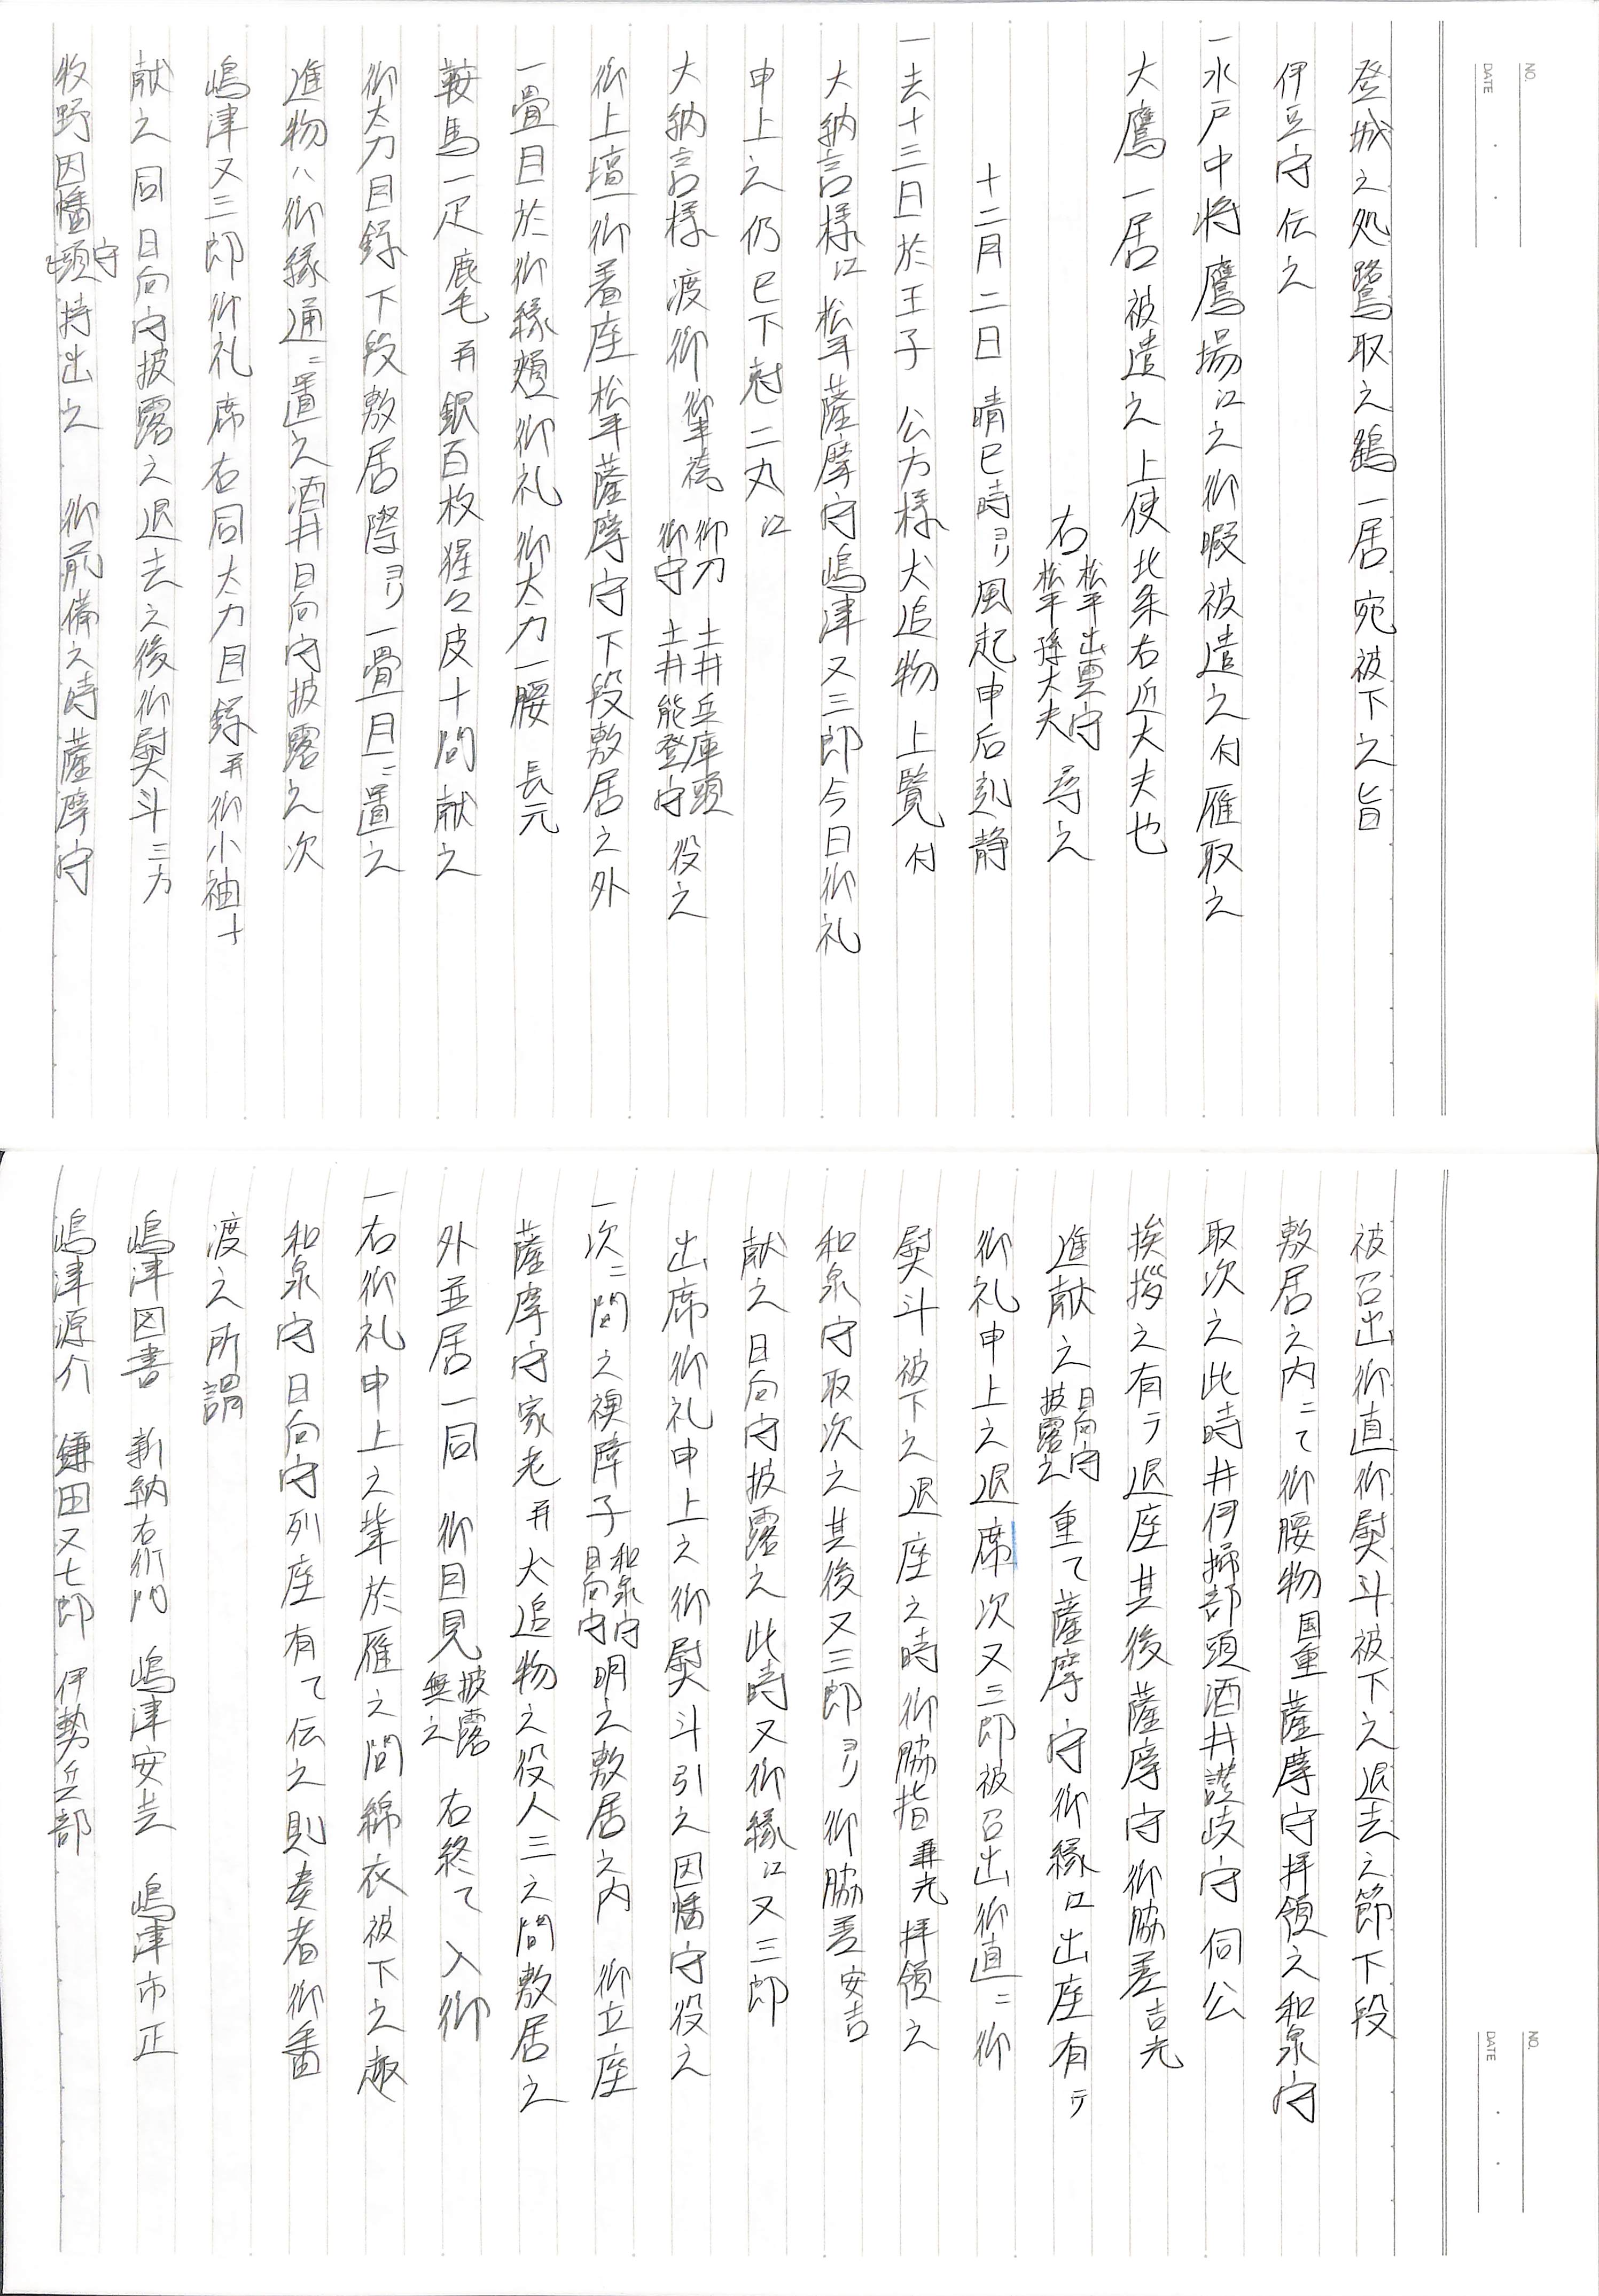 NO.
DATE
登城之処鷺取之鶴一居宛被下之旨
伊豆守伝之
一水戸中将鷹場江之御暇被遣之付雁取之
大鷹一居被遣之上使北条右近大夫也
右松平出雲守松平孫大夫尋之
十二月二日晴巳時ヨリ風起申后刻静
一去十三日於王子 公方様犬追物 上覧付
大納言様江松平薩摩守嶋津又三郎今日御礼
申上之仍巳下剋二丸江
大納言様 渡御 御半袴 御刀 土井兵庫頭 御守 土井能登守 役之
御上壇御着座松平薩摩守下段敷居之外
一畳目於御縁頬御礼 御太刀一腰 長元
鞍馬一疋 鹿毛 并銀百枚猩々皮十間献之
御太刀目録下段敷居際ヨリ一畳目ニ置之
進物ハ御縁通ニ置之酒井日向守披露之次
嶋津又三郎御礼席右同太刀目録并御小袖十
献之同日向守披露之退去之後御熨斗三方
牧野因幡頭守持出之 御前備之時薩摩守
NO.
DATE
被召出御直御熨斗被下之退去之節下段
敷居之内ニて御腰物 国重 薩摩守拝領之和泉守
取次之此時井伊掃部頭酒井讃岐守伺公
挨拶之有テ退座其後薩摩守御脇差 吉光
進献之 日向守披露之 重て薩摩守御縁江出座有テ
御礼申上之退席次又三郎被召出御直ニ御
熨斗被下之退座之時御脇指 兼光 拝領之
和泉守取次之其後又三郎ヨリ御脇差 安吉
献之日向守披露之此時又御縁江又三郎
出席御礼申上之御熨斗引之因幡守役之
一次ニ間之襖障子 和泉守日向守 明之敷居之内 御立座
薩摩守家老并犬追物之役人三之間敷居之
外並居一同 御目見 披露無之 右終て入御
一右御礼申上之輩於雁之間綿衣被下之趣
和泉守日向守列座有て伝之則奏者御番
渡之所謂
嶋津図書 新納右衛門 嶋津安芸 嶋津市正
嶋津源介 鎌田又七郎 伊勢兵部